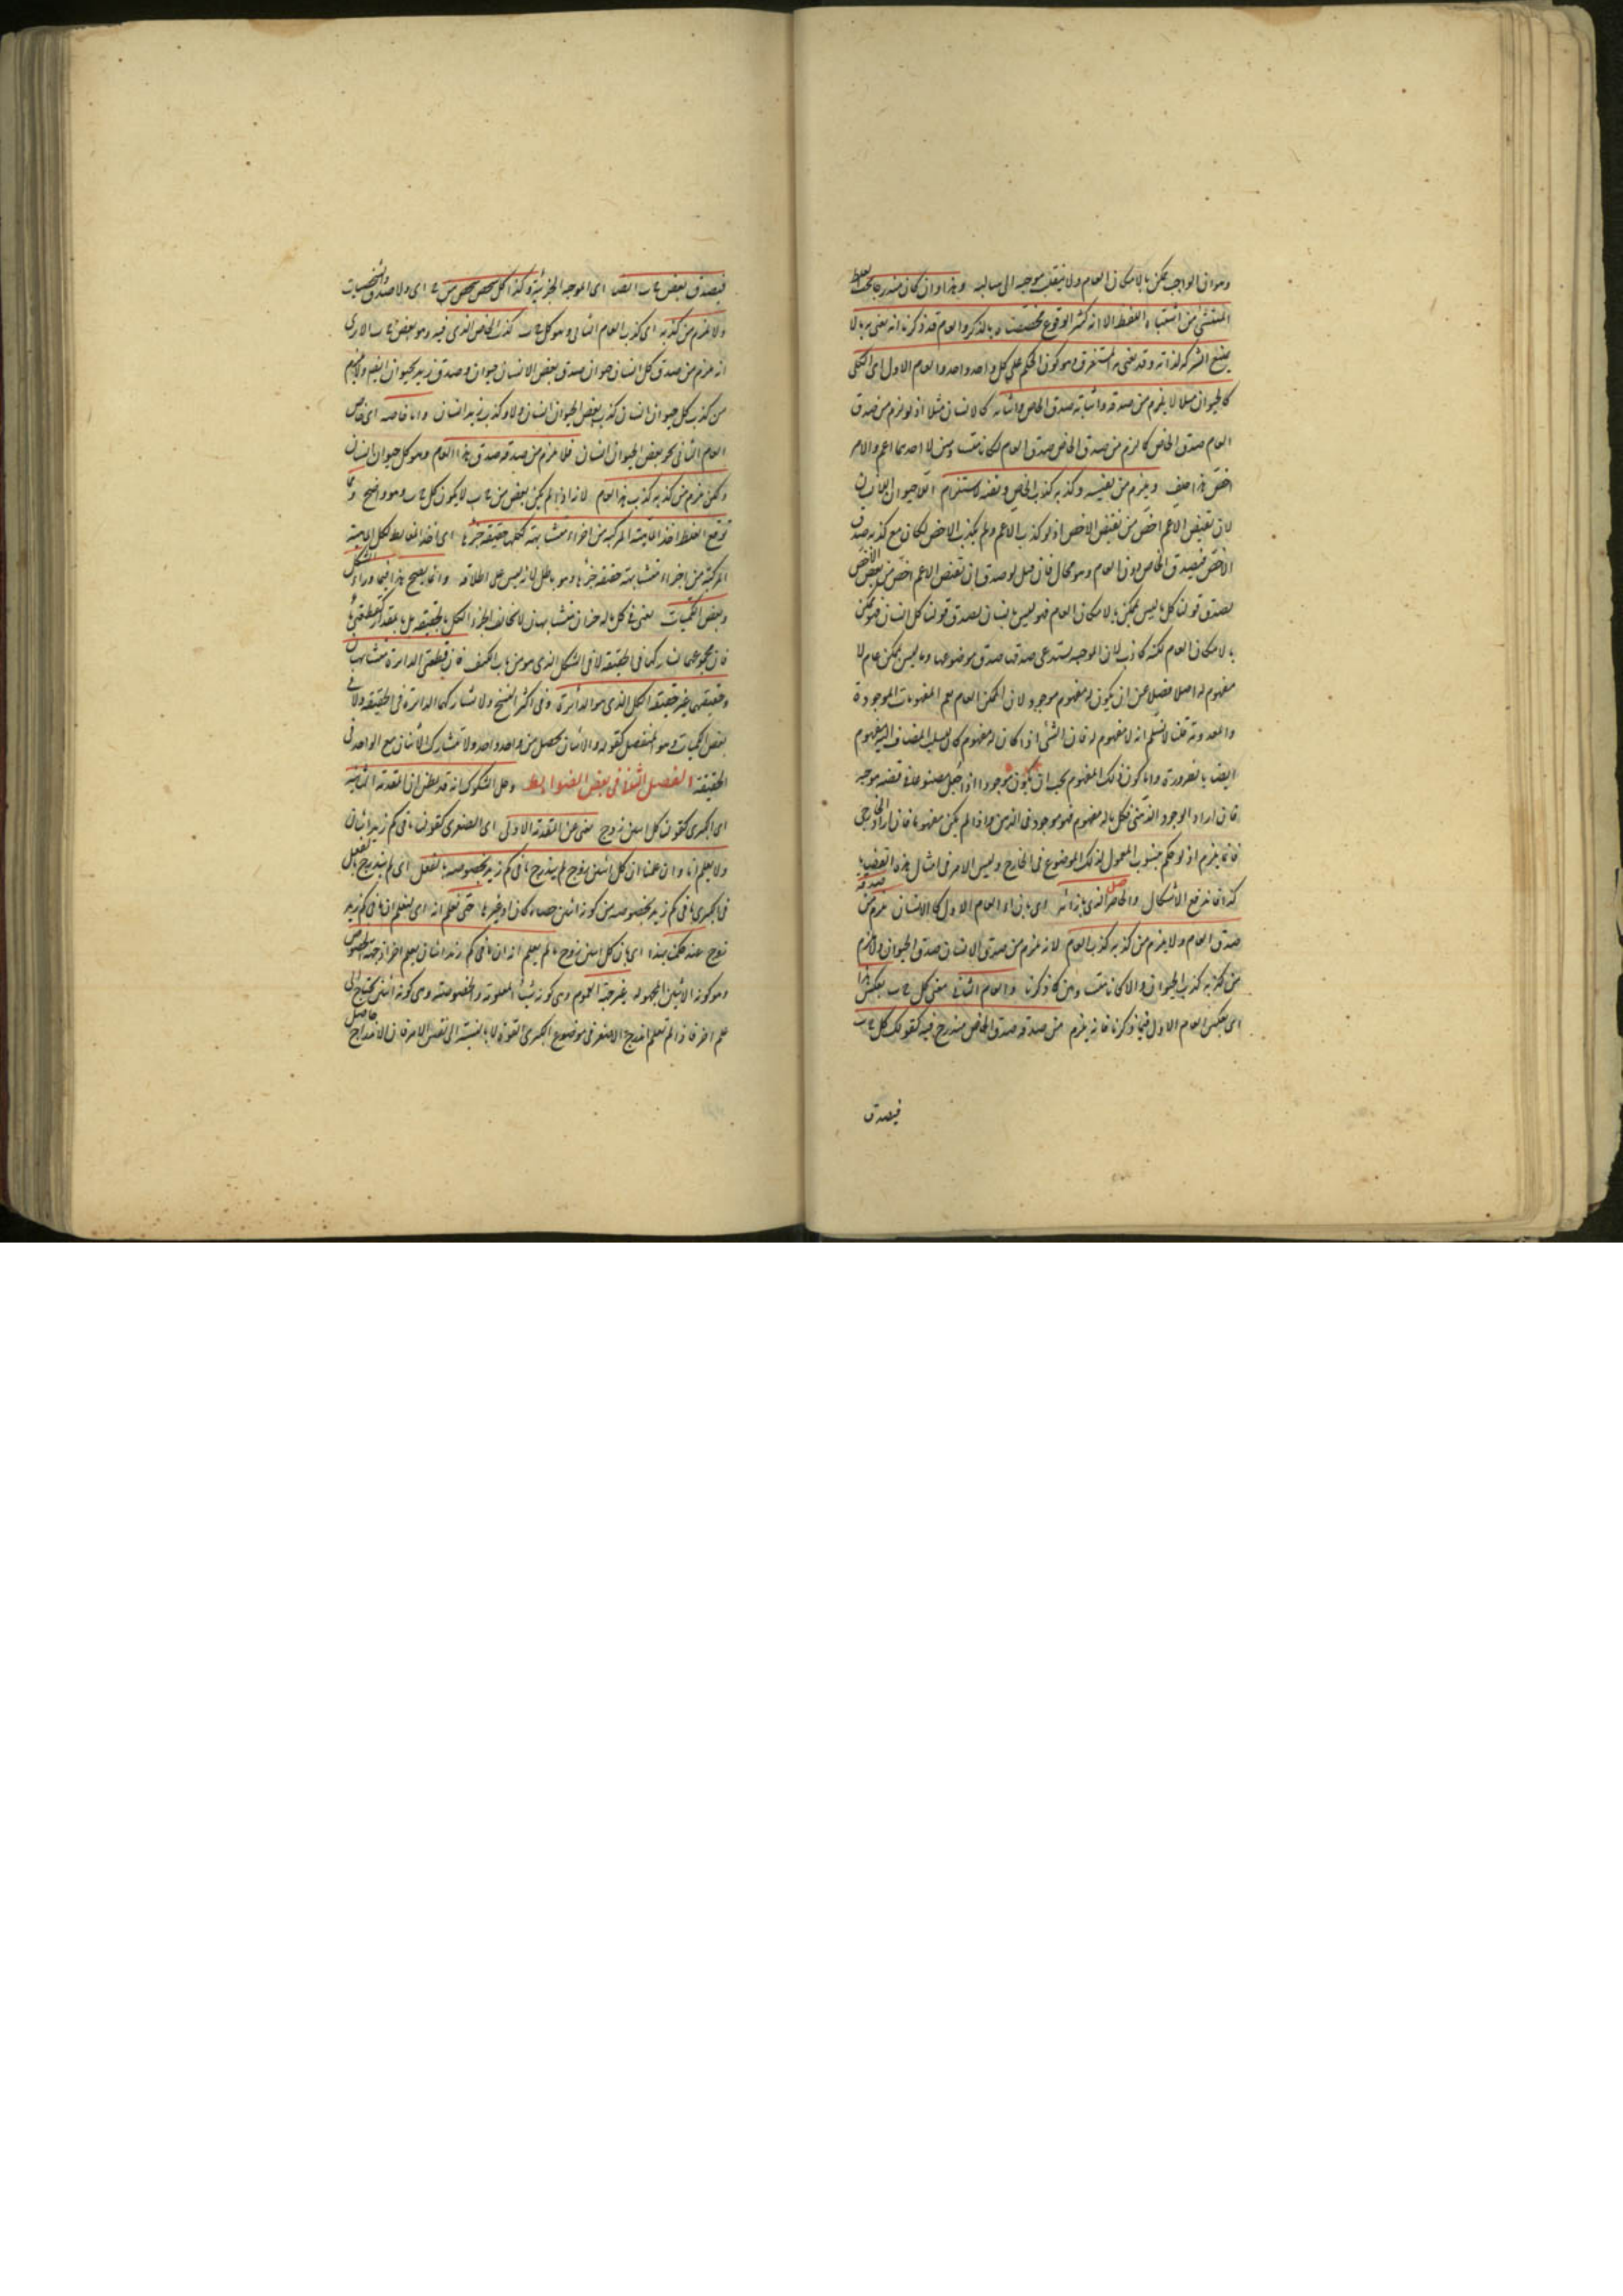 وهو ان الواجب ممكن بالامكان العام ولا ينقلب موجبه الى سالبه وهذا وان كان مندرجا تحت الغلط
المنتشئ من اشتباه اللفظ الا انه كثير الوقوع خصصت بالذكر والعام قد ذكرنا انه يعنى به ما لا
يمنع الشركة لذاته وقد يعنى به المستغرق وهو كون الحكم على كل واحد واحد والعام الاول اى الكلى
كالحيوان مثلا لا يلزم من صدقه واثباته صدق الخاص واثباته كالانسان مثلا اذ لو لزم من صدق
العام صدق الخاص كما لزم من صدق الخاص صدق العام لكانا متساويين لا احدهما اعم والآخر
اخص هذا خلف ويلزم من نفيه وكذبه كذب الخاص ونفيه لاستلزام انتفاء الحيوان انتفاء الانسان
لان نقيض الاعم اخص من نقيض الاخص اذ لو كذب الاعم ولم يكذب الاخص لكان مع كذبه صدق
الاخص فيصدق الخاص دون العام وهو محال فان قيل لو صدق ان نقيض الاعم اخص من نقيض الاخص
لصدق قولنا كل ما ليس بممكن بالامكان العام فهو ليس بانسان لصدق قولنا كل انسان فهو ممكن
بالامكان العام لكنه كاذب لان الموجبه يستدعى صدقها صدق موضوعها وما ليس بممكن عام لا
مفهوم له اصلا فضلا عن ان يكون له مفهوم موجود لان الممكن العام يعم المفهومات الموجودة
والمعدومة قلت لا نسلم انه لا مفهوم له فان الشئ اذا كان له مفهوم كان لسلبه المضاف اليه مفهوم
ايضا بالضرورة واما كون ذلك المفهوم يجب ان يكون موجودا اذا جعل موضوعا فى قضيه موجبه
فان اراد الوجود الذهنى فكل ما له مفهوم فهو موجود فى الذهن واذا لم يكن مفهوما فان اراد الخارجى
فانما يلزم اذ لو حكم بثبوت المحمول لذلك الموضوع فى الخارج وليس الامر فى امثال هذه القضايا
كذا فاندفع الاشكال والخاص الذى بازائه اى بازاء العام الاول كالانسان يلزم من صدقه
صدق العام ولا يلزم من كذبه كذب العام لانه يلزم من صدق الانسان صدق الحيوان ولا يلزم
من كذبه كذب الحيوان والا لكانا متساويين كما ذكرنا والعام الثانى معنى كل ج ب بعكس هذا
اى بعكس العام الاول فيما ذكرنا فانه يلزم من صدقه صدق الخاص مندرج فيه كقولك كل ج ب
فيصدق
فيصدق بعض ج ب ايضا اى الموجبه الجزئية وكذا كل شخص شخص من ج اى ولا صدق الشخصيات
ولا يلزم من كذبه اى كذب العام الثانى وهو كل ج ب كذب الخاص الذى فيه وهو بعض ج ب الا ترى
انه يلزم من صدق كل انسان حيوان صدق بعض الانسان حيوان وصدق زيد حيوان ايضا ولا يلزم
من كذب كل حيوان انسان كذب بعض الحيوان انسان ولا كذب زيد انسان واما خاصه اى خاص
العام الثانى نحو بعض الحيوان انسان فلا يلزم من صدقه صدق هذا العام وهو كل حيوان انسان
ولكن يلزم من كذبه كذب هذا العام لانه اذا لم يكن بعض من ج ب لا يكون كل ج ب وهو واضح ومما
توقع الغلط اخذ الماهية المركبة من اجزاء متشابهة ككلها حقيقة جزئها اى اخذ الغالط لكل الماهية
المركبة من اجزاء متشابهة حقيقة جزئها وهو باطل لانه ليس على اطلاقه وانما يصح هذا فيما وراء الشكل
وبعض الكميات يعنى فى كل ما له جزءان متشابهان لا يخالف الجزء الكل بالحقيقة بل بالمقدار
فان مجموعهما لا يشاركهما فى الحقيقة لا فى الشكل الذى هو من باب الكيف فان قطعتى الدائرة متشابهتان
وحقيقتهما غير حقيقة الكل الذى هو الدائرة وفى اكثر النسخ ولا تشاركهما الدائرة فى الحقيقه ولا فى
بعض الكميات وهو المنفصل كقوله والاثنان يحصل من واحد واحد ولا تشارك الاثنان مع الواحد فى
الحقيقة الفصل الثانى فى بعض الضوابط وحل الشكوك انه قد يظن ان المقدمة الثانية
اى الكبرى كقولنا كل اثنين زوج تغنى عن المقدمة الاولى اى الصغرى كقولنا ما فى كم زيد اثنان
ولا يعلم انا وان علمنا ان كل اثنين زوج لم يندرج ما فى كم زيد بخصوصه بالفعل اى لم يندرج بالفعل
فى الكبرى ما فى كم زيد بخصوصه من كونه اثنين حصاة كان او غيرها حتى نعلم انه اى ليعلم ان ما فى كم زيد
زوج عند حكمنا بهذا اى بان كل اثنين زوج ما لم يعلم انه اى ما فى كم زيد اثنان بعلم اخر اذ جهة الخصوص
وهو كونه الاثنين المجهوله غير جهة العموم وهى كونه شيئا المعلومة والخصوصة وهى كونه اثنين يحتاج الى
علم اخر فاذا لم نعلم اندراج الاصغر فى موضوع الكبرى بالقوة لا بالنسبة الى نفس الامر فان الاندراج حاصل